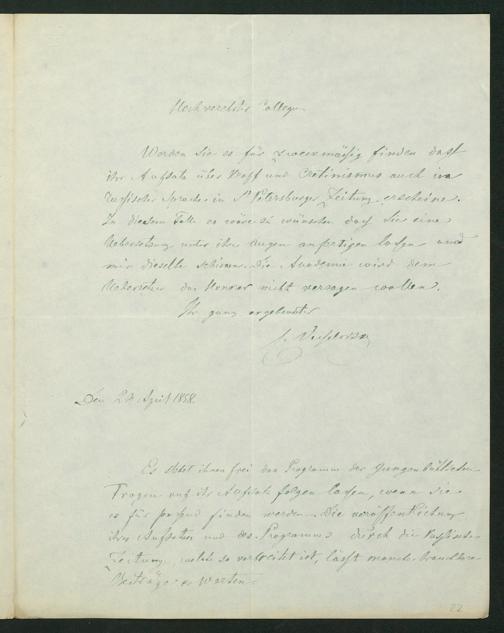 Hochverehrter College
Werden Sie es für zweckmäsig finden daſs
ihr Aufsatz über Kropf und Cretinismus auch in
Russischer Sprache in St Petersburger Zeitung erscheine.
In diesem Falle es wäre zu wünschen daſs Sie eine
Uebersetzung unter ihren Augen anfertigen laſsen und
mir dieselbe schicken. Die Academie wird dem
Uebersetzer das Honorar nicht versagen wollen.
Ihr ganz ergebenster
Den 24 April 1858
Es steht ihnen frei das Programm der
Fragen auf ihr Aufsatz folgen laſsen, wenn sie
es für paſsend finden werden. Die veröffentlichung
ihres Aufsatzes und des Programms durch die Russische
Zeitung, welche so verbreitet ist, läſst manche brauchbare
Beiträge erwarten.
22